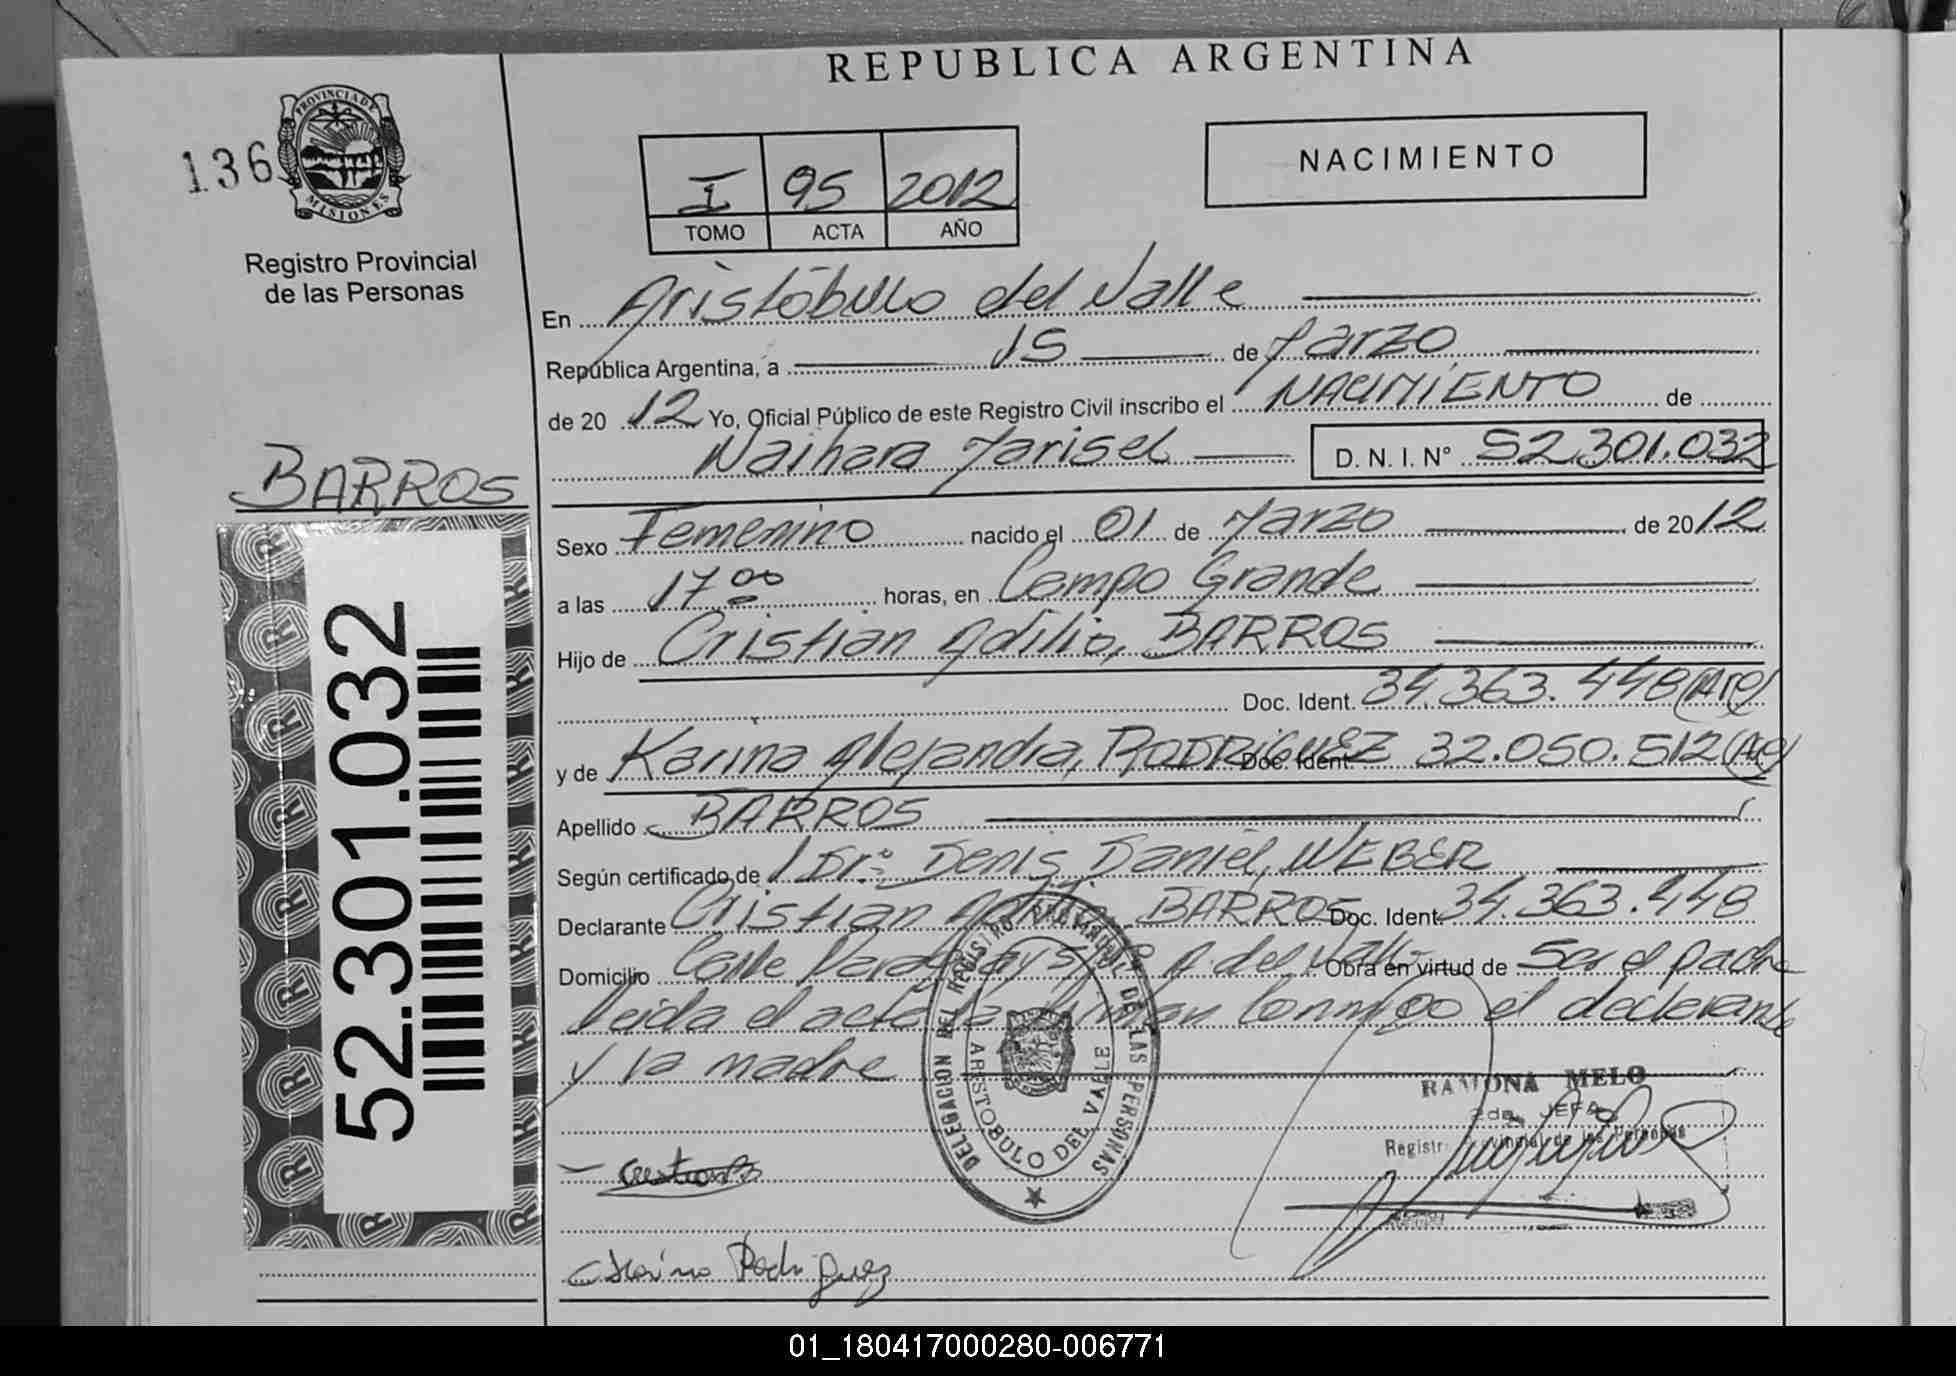 REPUBLICA ARGENTINA
136
PROVINCIA DE
MISIONES
Registro Provincial
de las Personas
I 95 2012
TOMO ACTA AÑO
NACIMIENTO
En Aristóbulo del Valle
República Argentina, a 15 de Marzo
de 20 12 Yo, Oficial Público de este Registro Civil inscribo el NACIMIENTO de
Naihara Marisel D. N. I. N° 52.301.032
BARROS
Sexo Femenino nacido el 01 de Marzo de 20 12
a las 17 00 horas, en Campo Grande
Hijo de Cristian Adilio, BARROS
Doc. Ident. 34.363.448 (Arg)
y de Karina Alejandra, RODRIGUEZ Doc. Ident. 32.050.512 (Arg)
Apellido BARROS
Según certificado de Dr: Denis Daniel, WEBER
Declarante Cristian Adilio BARROS Doc. Ident. 34.363.448
Domicilio Calle Paraguay s/n A. del Valle Obra en virtud de Ser el padre
Leida el acta la firman conmigo el declarante
y la madre
52.301.032
DELEGACION DEL REGISTRO PROVINCIAL DE LAS PERSONAS
ARISTOBULO DEL VALLE
RAMONA MELO
2da. JEFA
Registro Provincial de las Personas
Karina Rodriguez
01_180417000280-006771